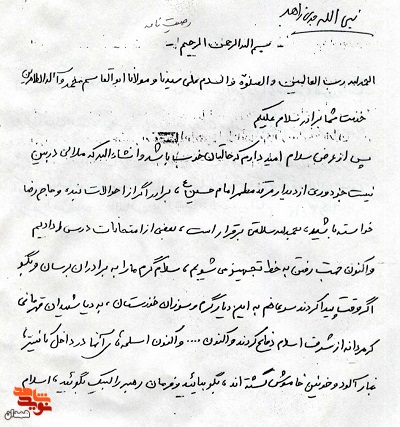 نبی الله
وصیت نامه
بسم الله الرحمن الرحیم
الحمدلله رب العالمین و الصلوة و السلام علی سیدنا و مولانا ابوالقاسم محمد و آله الطاهرین
خدمت شما برادر سلام علیکم
پس از عرض سلام امیدوارم که حالتان خوب باشد و انشاءالله که ملالی در بین
نیست جز دوری از دیدار مرقد مطهر امام حسین ع برادر اگر از احوالات بنده حاج رضا
خواسته باشید، بحمدلله سلامتی برقرار است، بعضی از امتحانات درسی را دادیم
و اکنون جهت رفتن به خط تجهیز می شویم، سلام گرم ما را به برادران برسان و بگو
اگر وقت پیدا کردند سری هم به این دیار گرم و سوزان خوزستان، به دیار شهیدان قهرمانی
که مردانه از شرف اسلام دفاع کردند و اکنون .... و اکنون اسلحه های آنها در داخل
غبار آلود و خونین خاموش گشته اند، بگو بیائید و فرمان رهبر را لبیک بگوئید، اسلام
شاهد
نوید
همدان